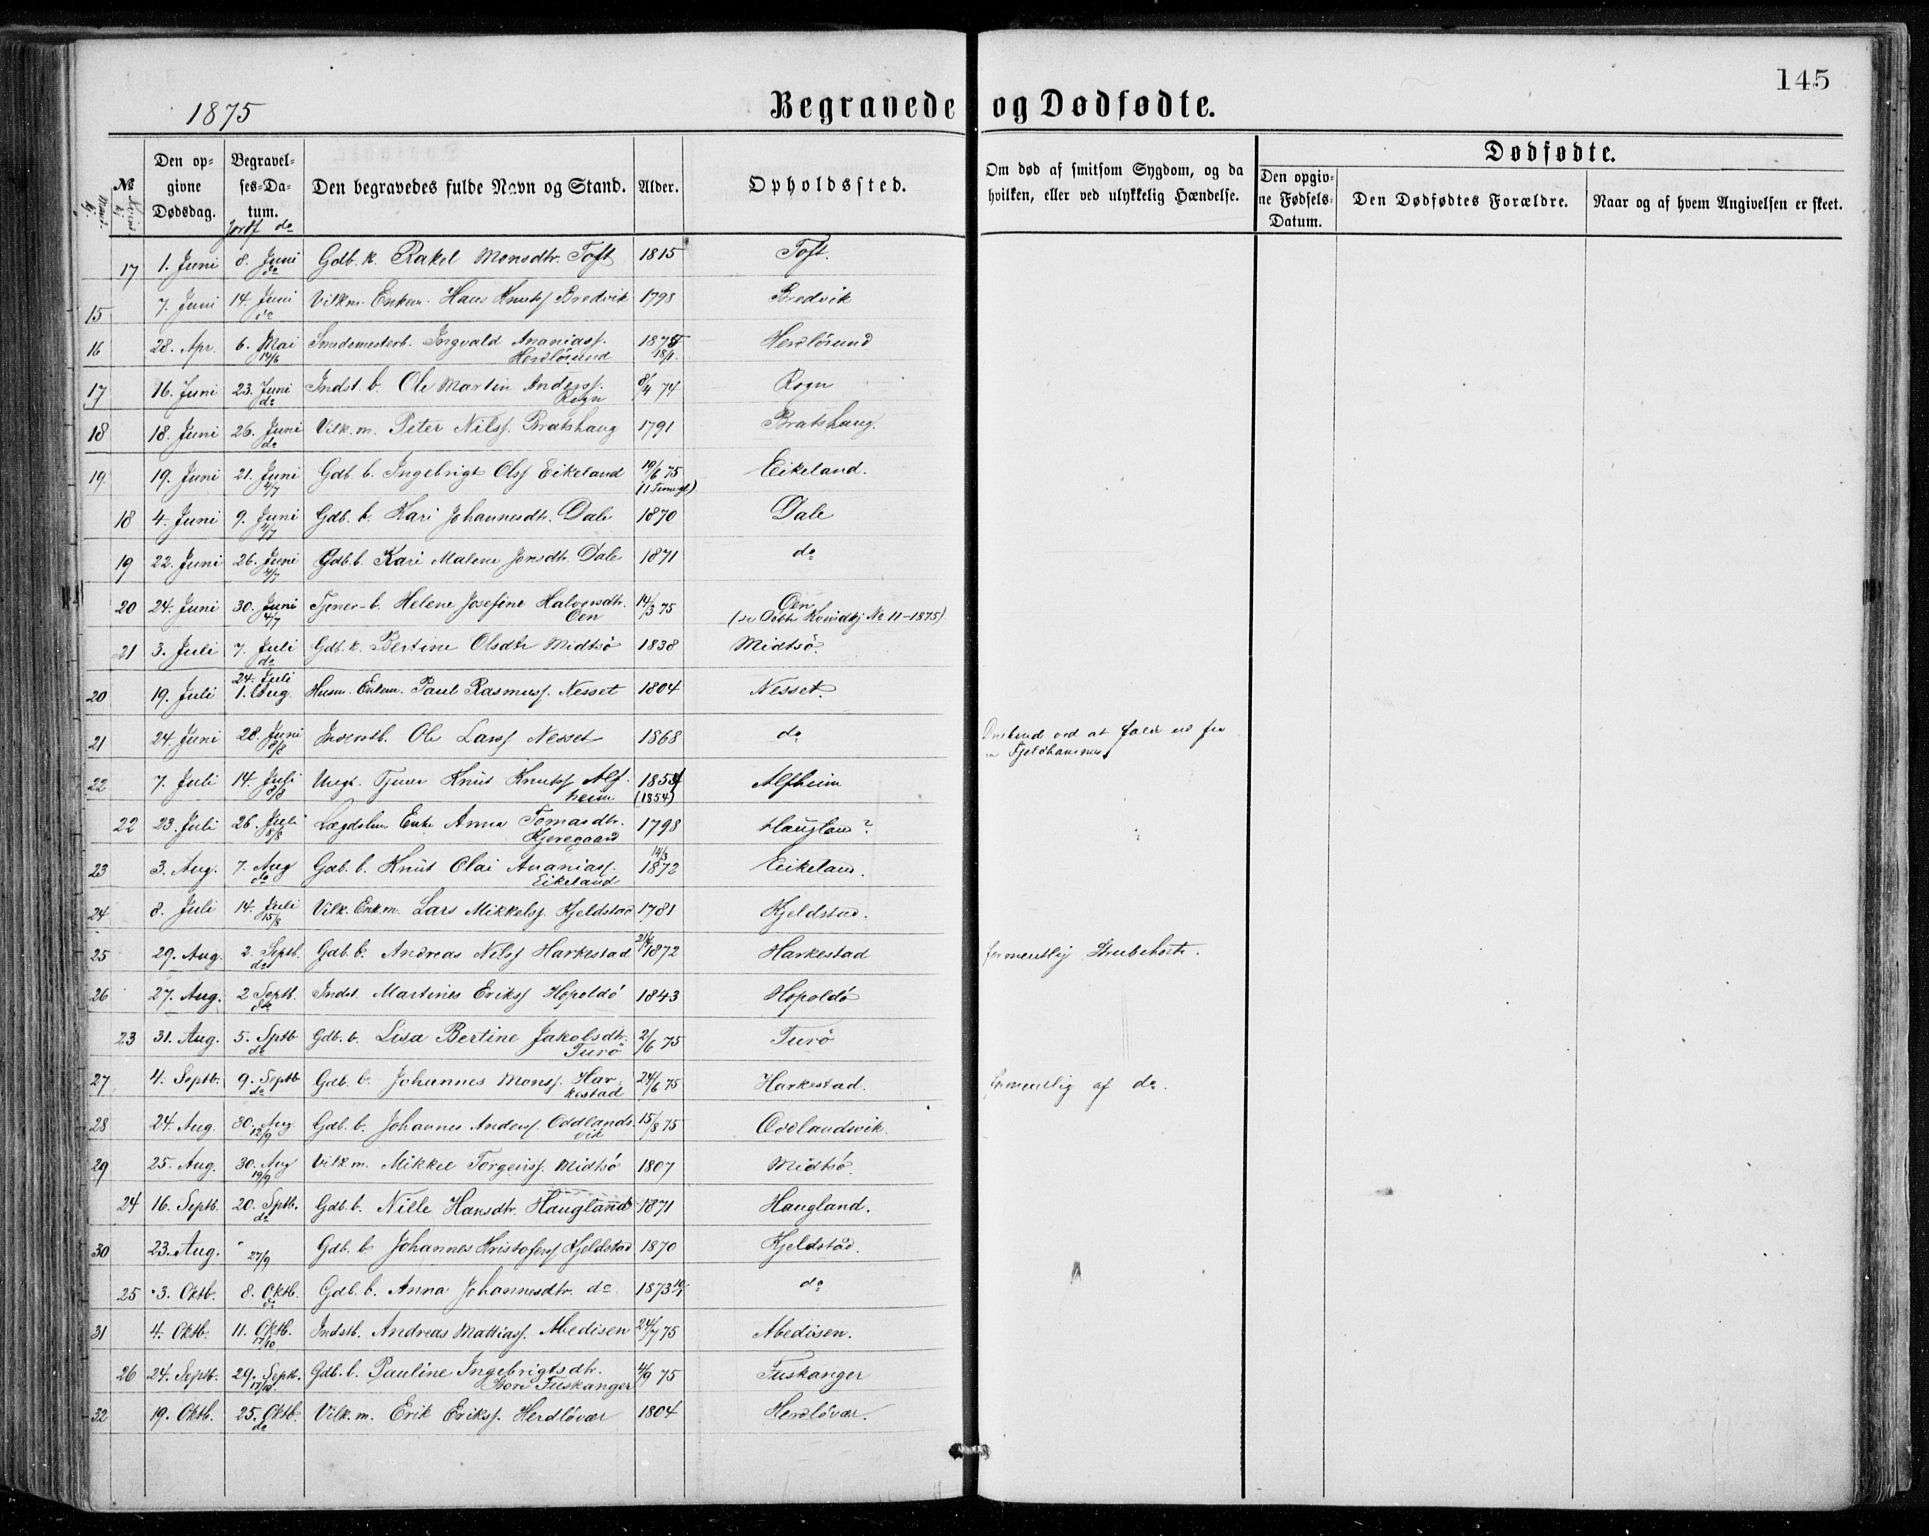 145
1875
Begravede og Dødfødte.
№
Den opgivne Dødsdag.
Begravelses-Datum.
Jordf. do
Den begravedes fulde Navn og Stand.
Alder.
Opholdssted.
Om død af smitsom Sygdom, og da hvilken, eller ved ulykkelig Hændelse.
Dødfødte.
Den opgivne Fødsels-Datum.
Den Dødfødtes Forældre.
Naar og af hvem Angivelsen er skeet.
17 1. Juni 8. Juni do Gdb. k. Rakel Monsdtr. Toft 1815 Toft.
15 7. Juni 14. Juni do Vilkm. Enkem. Hans Knutsf Bredvik 1798 Bredvik
16 28. Apr. 6. Mai 14/6 Smedemesterb. Ingvald Ananiasf. Herdlösund 1875 18/1. Herdlösund
17 16. Juni 23. Juni do Indst. b. Ole Martin Andersf. Rogn 8/4 74 Rogn
18 18. Juni 26. Juni do Vilk. m. Peter Nilsf. Bratshaug 1791 Bratshaug.
19 19. Juni 21. Juni 4/7 Gdb. b. Ingebrigt Olsf Eikeland 19/6 75 Eikeland.
18 4. Juni 9. Juni 4/7 Gdb. b. Kari Johannesdtr. Dale 1870 Dale
19 22. Juni 26. Juni 4/7 Gdb. b. Kari Malene Jonsdtr. Dale 1871 do
20 24. Juni 30. Juni 4/7 Tjener-b. Helene Josefine Halvorsdtr. Oen 14/3 75 Oen
(se Döbte Kvindkj № 11-1875)
21 3. Juli 7. Juli do Gdb. k. Bertine Olsdtr Midtsö 1838 Midtsö.
20 19. Juli 24. Juli 1. Aug. Husm. Enkem. Paul Rasmusf. Nesset 1804 Nesset.
21 24. Juni 28. Juni 8/8 Inderstb. Ole Larsf Nesset 1868 do ved at falde ud fra
Fjeldhammer
22 7. Juli 14. Juli 8/8 Ungk. Tjener Knut Knutsf Alfheim 1854 (1854) Alfheim
22 23. Juli 26. Juli 8/8 Lægdslem Enke Anna Tomasdtr. Kjeregaard 1798 Haugland?
23 3. Aug. 7. Aug do Gdb. b. Knut Olai Ananiasf. Eikeland 14/3 1872 Eikeland.
24 8. Juli 14. Juli 15/8 Vilk. Enkm. Lars Mikkelsf Kjeldstad 1781 Kjeldstad.
25 29. Aug. 2. Septb. do Gdb. b. Andreas Nilsf Harkestad 1872 Harkestad formentlig Strubehoste.
26 27. Aug. 2 Septb. do Indst. Martines Eriksf Hopoldö 1843 Hopoldö
23 31. Aug. 5. Septb do Gdb. b. Lisa Bertine Jakobsdtr. Turö 2/6 75 Turö
27 4. Septb. 9. Septb do Gdb. b. Johannes Monsf. Harkestad 24/6 75 Harkestad. formentlig af do.
28 24. Aug. 30. Aug. 12/9 Gdb. b. Johannes Andersf. Oddlandsvik 15/8 75 Oddlandsvik.
29 25. Aug. 30. Aug 19/9 Vilk m. Mikkel Torgersf. Midtsö 1807 Midtsö.
24 16. Septb. 20. Septb. do Gdb. b. Nille Hansdtr. Haugland 1871 Haugland.
30 23. Aug. 27/9 Gdb. b Johannes Kristofersf Kjeldstad 1870 Kjeldstad.
25 3. Oktb. 8. Oktb. do Gdb. b. Anna Johannesdtr. do 1873 do
31 4. Oktb. 11. Oktb. 17/10 Indstb. Andreas Mattiasf. Abedisen 24/7 75 Abedisen.
26 24. Septb. 29. Septb. 17/10 Gdb. b. Pauline Ingebrigtsdtr. Store Fuskanger 4/9 75 Fuskanger
32 19. Oktb. 25. Oktb. do Vilk. m. Erik Eriksf. Herdlövær 1804 Herdlövær.